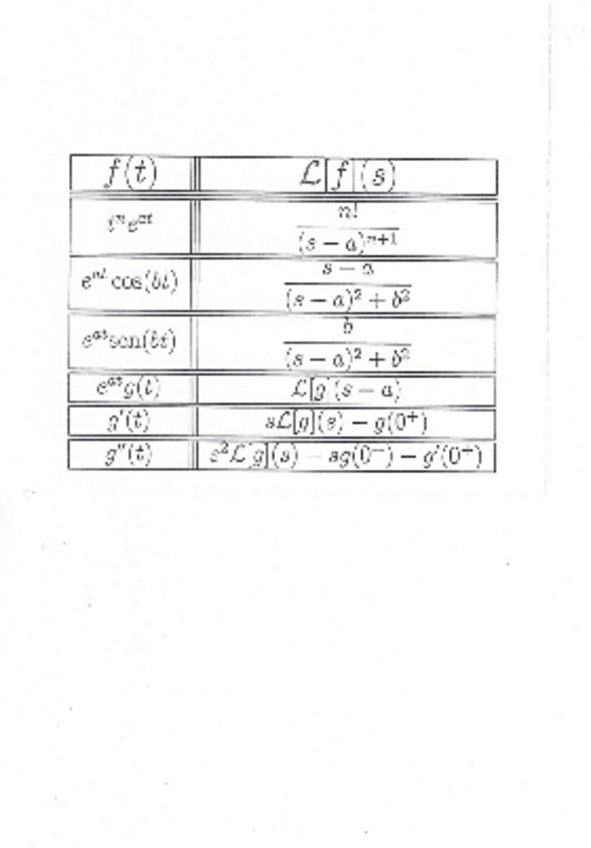 f(t) ℒ[f](s)
tⁿeᵃᵗ n!/(s − a)ⁿ⁺¹
eᵃᵗ cos(bt) (s − a)/((s − a)² + b²)
eᵃᵗsen(bt) b/((s − a)² + b²)
eᵃᵗg(t) ℒ[g](s − a)
g′(t) sℒ[g](s) − g(0⁺)
g″(t) s²ℒ[g](s) − sg(0⁺) − g′(0⁺)